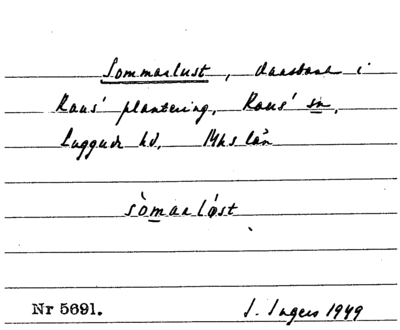 Sommarlust, dansbana i
Raus' plantering, Raus' sn,
Luggude hd, Mhs län
sòmarlúst
Nr 5691. I. Ingers 1949